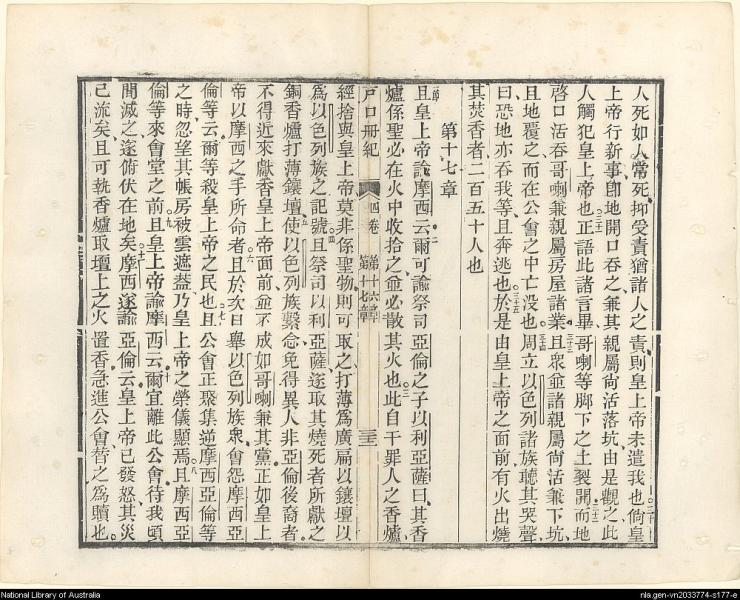 人死如人常死抑受責猶諸人之責則皇上帝未遣我也倘皇
上帝行新事卽地開口吞之兼其親屬尙活落坑由是觀之此
人觸犯皇上帝也正語此諸言畢哥喇等脚下之土裂開而地
啓口活吞哥喇兼親屬房屋諸業且衆並諸親屬尙活兼下坑
且地覆之而在公會之中亡没也周立以色列諸族聽其哭聲
曰恐地亦吞我等且奔逃也於是由皇上帝之面前有火出燒
其焚香者二百五十人也
第十七章
且皇上帝諭摩西云爾可諭祭司亞倫之子以利亞薩曰其香
爐係聖必在火中收拾之並必散其火也此自干罪人之香爐
戶口冊紀 四卷 第十六章 第十七章
經捨與皇上帝莫非係聖物則可取之打薄爲廣扁以鑲壇以
爲以色列族之記號且祭司以利亞薩遂取其燒死者所獻之
銅香爐打薄鑲壇使以色列族繫念免得異人非亞倫後裔者
不得近來獻香皇上帝面前並不成如哥喇兼其黨正如皇上
帝以摩西之手所命者且於次日舉以色列族衆會怨摩西亞
倫等云爾等殺皇上帝之民也且公會正聚集逆摩西亞倫等
之時忽望其帳房被雲遮蓋乃皇上帝之榮儀顯焉且摩西亞
倫等來會堂之前且皇上帝諭摩西云爾宜離此公會待我頃
間滅之遂俯伏在地矣摩西遂諭亞倫云皇上帝已發怒其災
己流矣且可執香爐取壇上之火置香急進公會替之爲贖也
National Library of Australia
nla.gen-vn2033774-s177-e